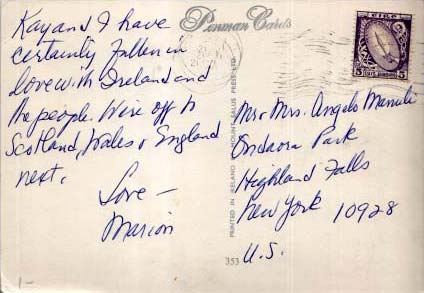 Penman Cards
Kay and I have
certainly fallen in
love with Ireland and
the people. We're off to
Scotland, Wales & England
next.
Love -
Marion
PRINTED IN IRELAND MOUNT SALUS PRESS LTD
353
1-
EIRE
5 5
Mr + Mrs. Angelo
Ondaora Park
Highland Falls
New York 10928
U.S.